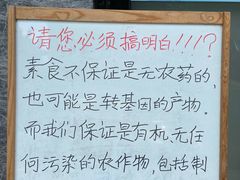 请您必须搞明白!!!?
素食不保证是无农药的,
也可能是转基因的产物.
而我们保证是有机、无任
何污染的农作物,包括制